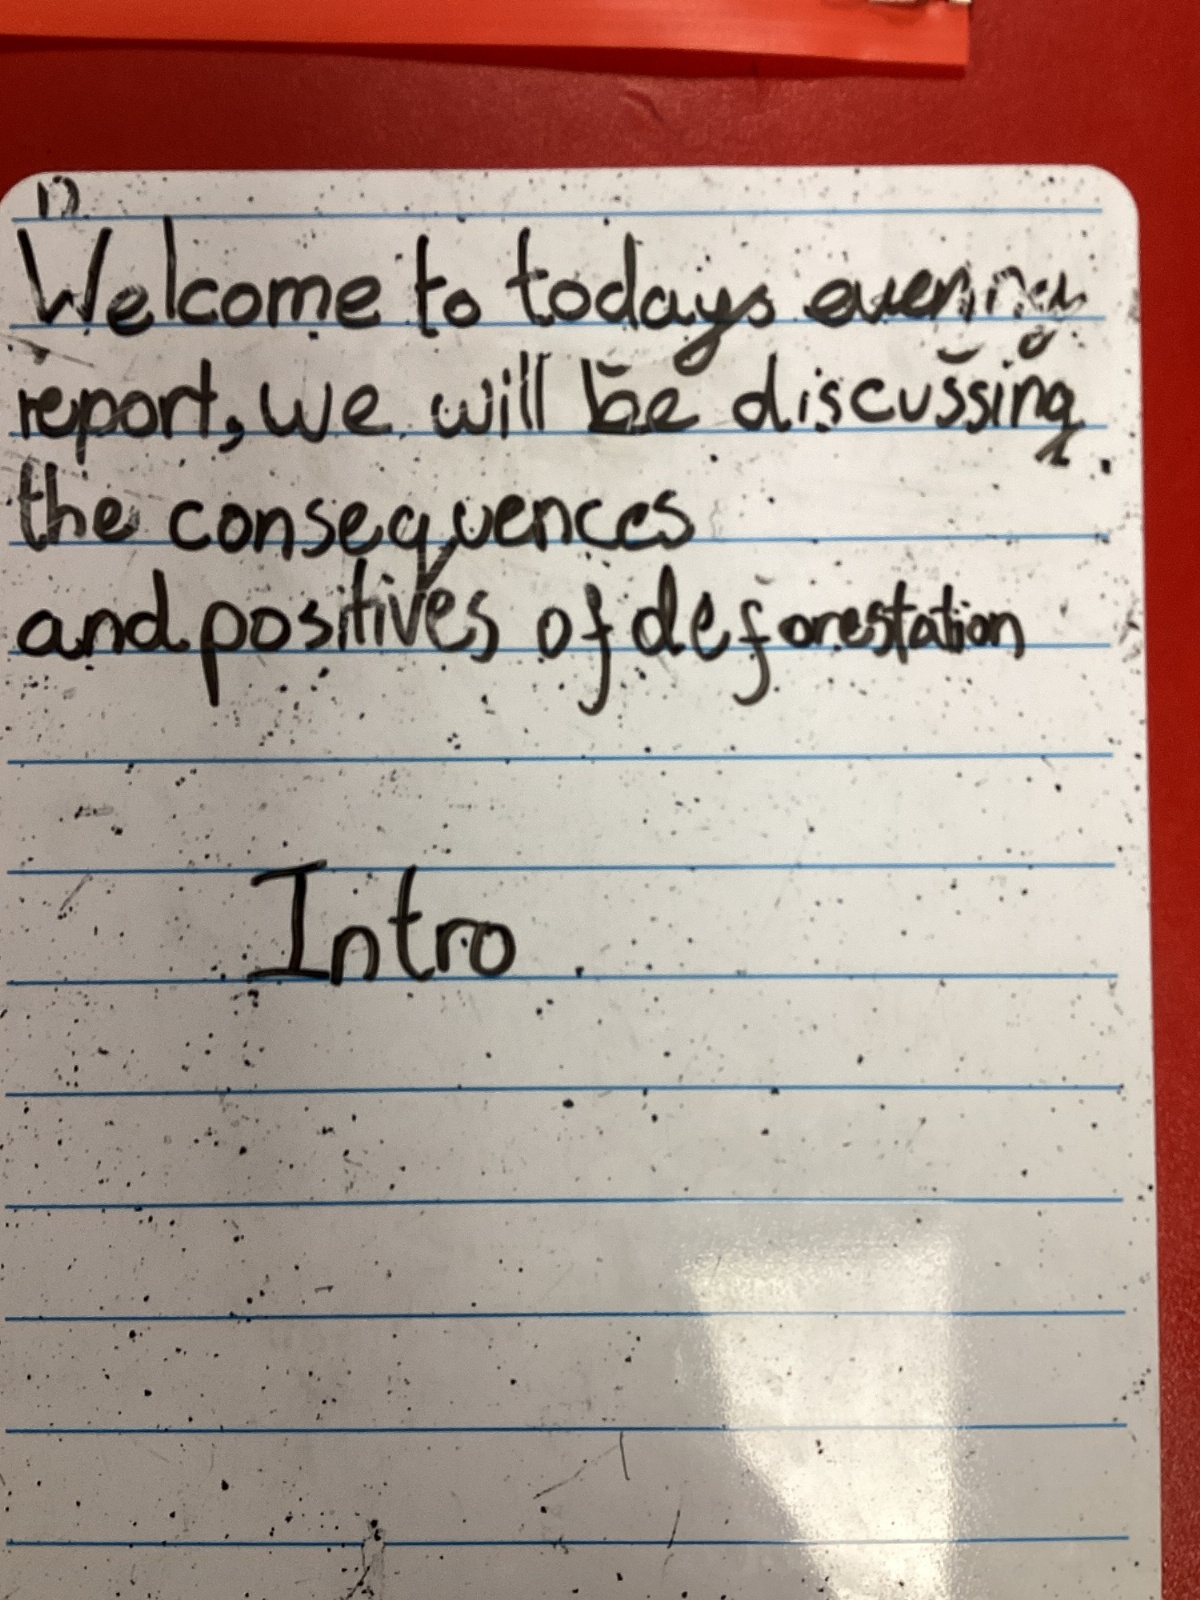 Welcome to todays evening
report, we will be discussing
the consequences
and positives of deforestation
Intro